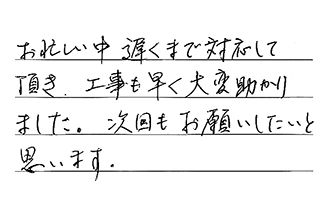 お忙しい中 遅くまで対応して
頂き、工事も早く大変助かり
ました。次回もお願いしたいと
思います。